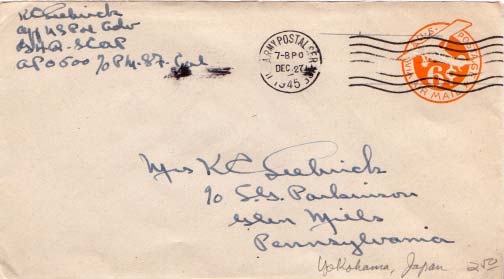 KC Seebrick
Off US Pol Adv
GHQ-SCAP
APO 500 c/o PM-SF-Cal
U.S. ARMY POSTAL SER.
7-8 PD
DEC 27
1945
U.S. POSTAGE
6¢
VIA AIR MAIL
Mrs KC Seebrick
c/o S.G. Parkinson
Glen Mills
Pennsylvania
Yokohama, Japan 2.50